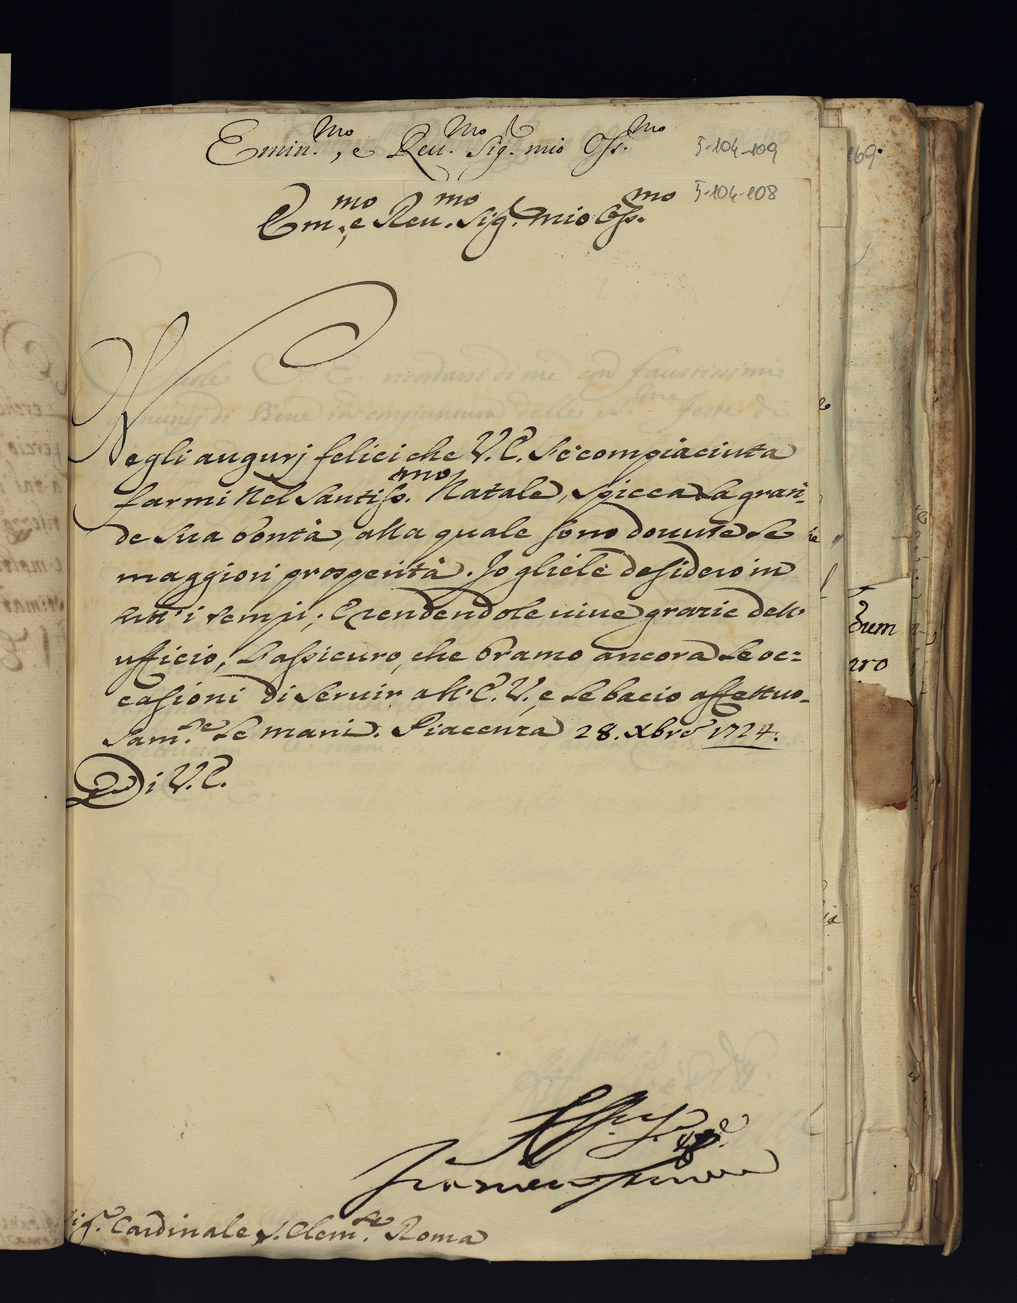 Emin.mo, e Reu.mo Sig.r mio Oss.mo
5-104-109
169.
Em.mo, e Reu.mo Sig.r mio Oss.mo
5-104-108
Negli augurj felici che V.E. s'è compiaciuta
farmi nel Santiss.mo Natale, spicca la gran
de sua bontà, alla quale sono douute le
maggiori prosperità. Io gliele desidero in
tutt'i tempi; E rendendole viue grazie dell'
ufficio, L'assicuro, che bramo ancora le oc=
casioni di seruir all'E.V., e le bacio affettuo-
sam.te le mani. Piacenza 28. Xbre 1724.
Di V.E.
Francesco Farnese
Sig.r Cardinale S. Clem.te Roma